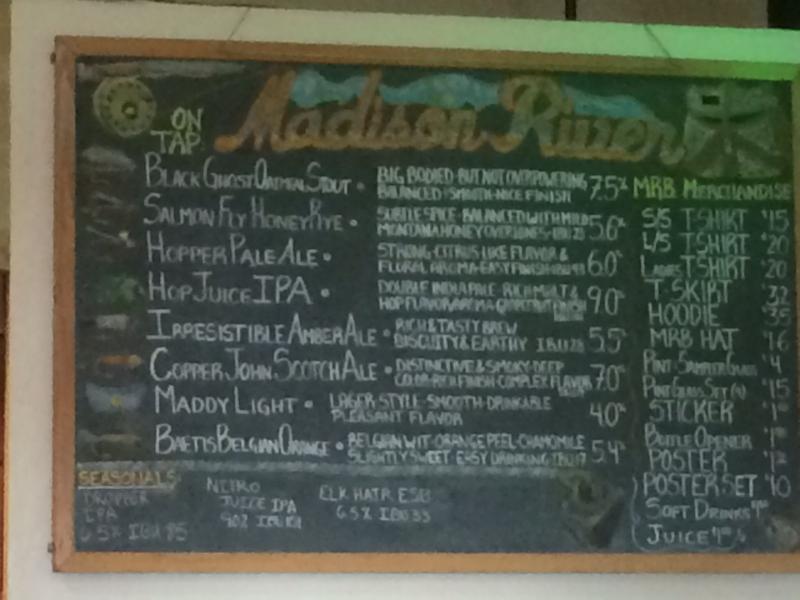 ON TAP:
Madison River
BLACK GHOST OATMEAL STOUT • BIG BODIED-BUT NOT OVERPOWERING 7.5%
BALANCED-SMOOTH-NICE FINISH
SALMON FLY HONEY RYE • SUBTLE SPICE-BALANCED WITH MILD 5.6%
MONTANA HONEY OVERTONES-IBU 23
HOPPER PALE ALE • STRONG-CITRUS LIKE FLAVOR & 6.0%
FLORAL AROMA-EASY FINISH
HOP JUICE IPA • DOUBLE INDIA PALE-RICH MALT & 9.0%
HOP FLAVOR AROMA FINISH
IRRESISTIBLE AMBER ALE • RICH & TASTY BREW 5.5%
BISCUITY & EARTHY IBU 28
COPPER JOHN SCOTCH ALE • DISTINCTIVE & SMOKY-DEEP 7.0%
COLOR-RICH FINISH-COMPLEX FLAVOR
MADDY LIGHT • LAGER STYLE-SMOOTH-DRINKABLE 4.0%
PLEASANT FLAVOR
BAETIS BELGIAN ORANGE • BELGIAN WIT-ORANGE PEEL-CHAMOMILE 5.4%
SLIGHTLY SWEET-EASY DRINKING IBU 17
SEASONALS
DROPPER
IPA
6.5% IBU 85
NITRO
JUICE IPA
9.0% IBU
ELK HAIR ESB
6.5% IBU 33
MRB MERCHANDISE
S/S T-SHIRT $15
L/S T-SHIRT $20
LADIES T-SHIRT $20
T-SKIRT $32
HOODIE $35
MRB HAT $16
PINT-SAMPLER GLASS $4
PINT GLASS SET (4) $15
STICKER
BOTTLE OPENER
POSTER
POSTER SET $10
SOFT DRINKS
JUICE